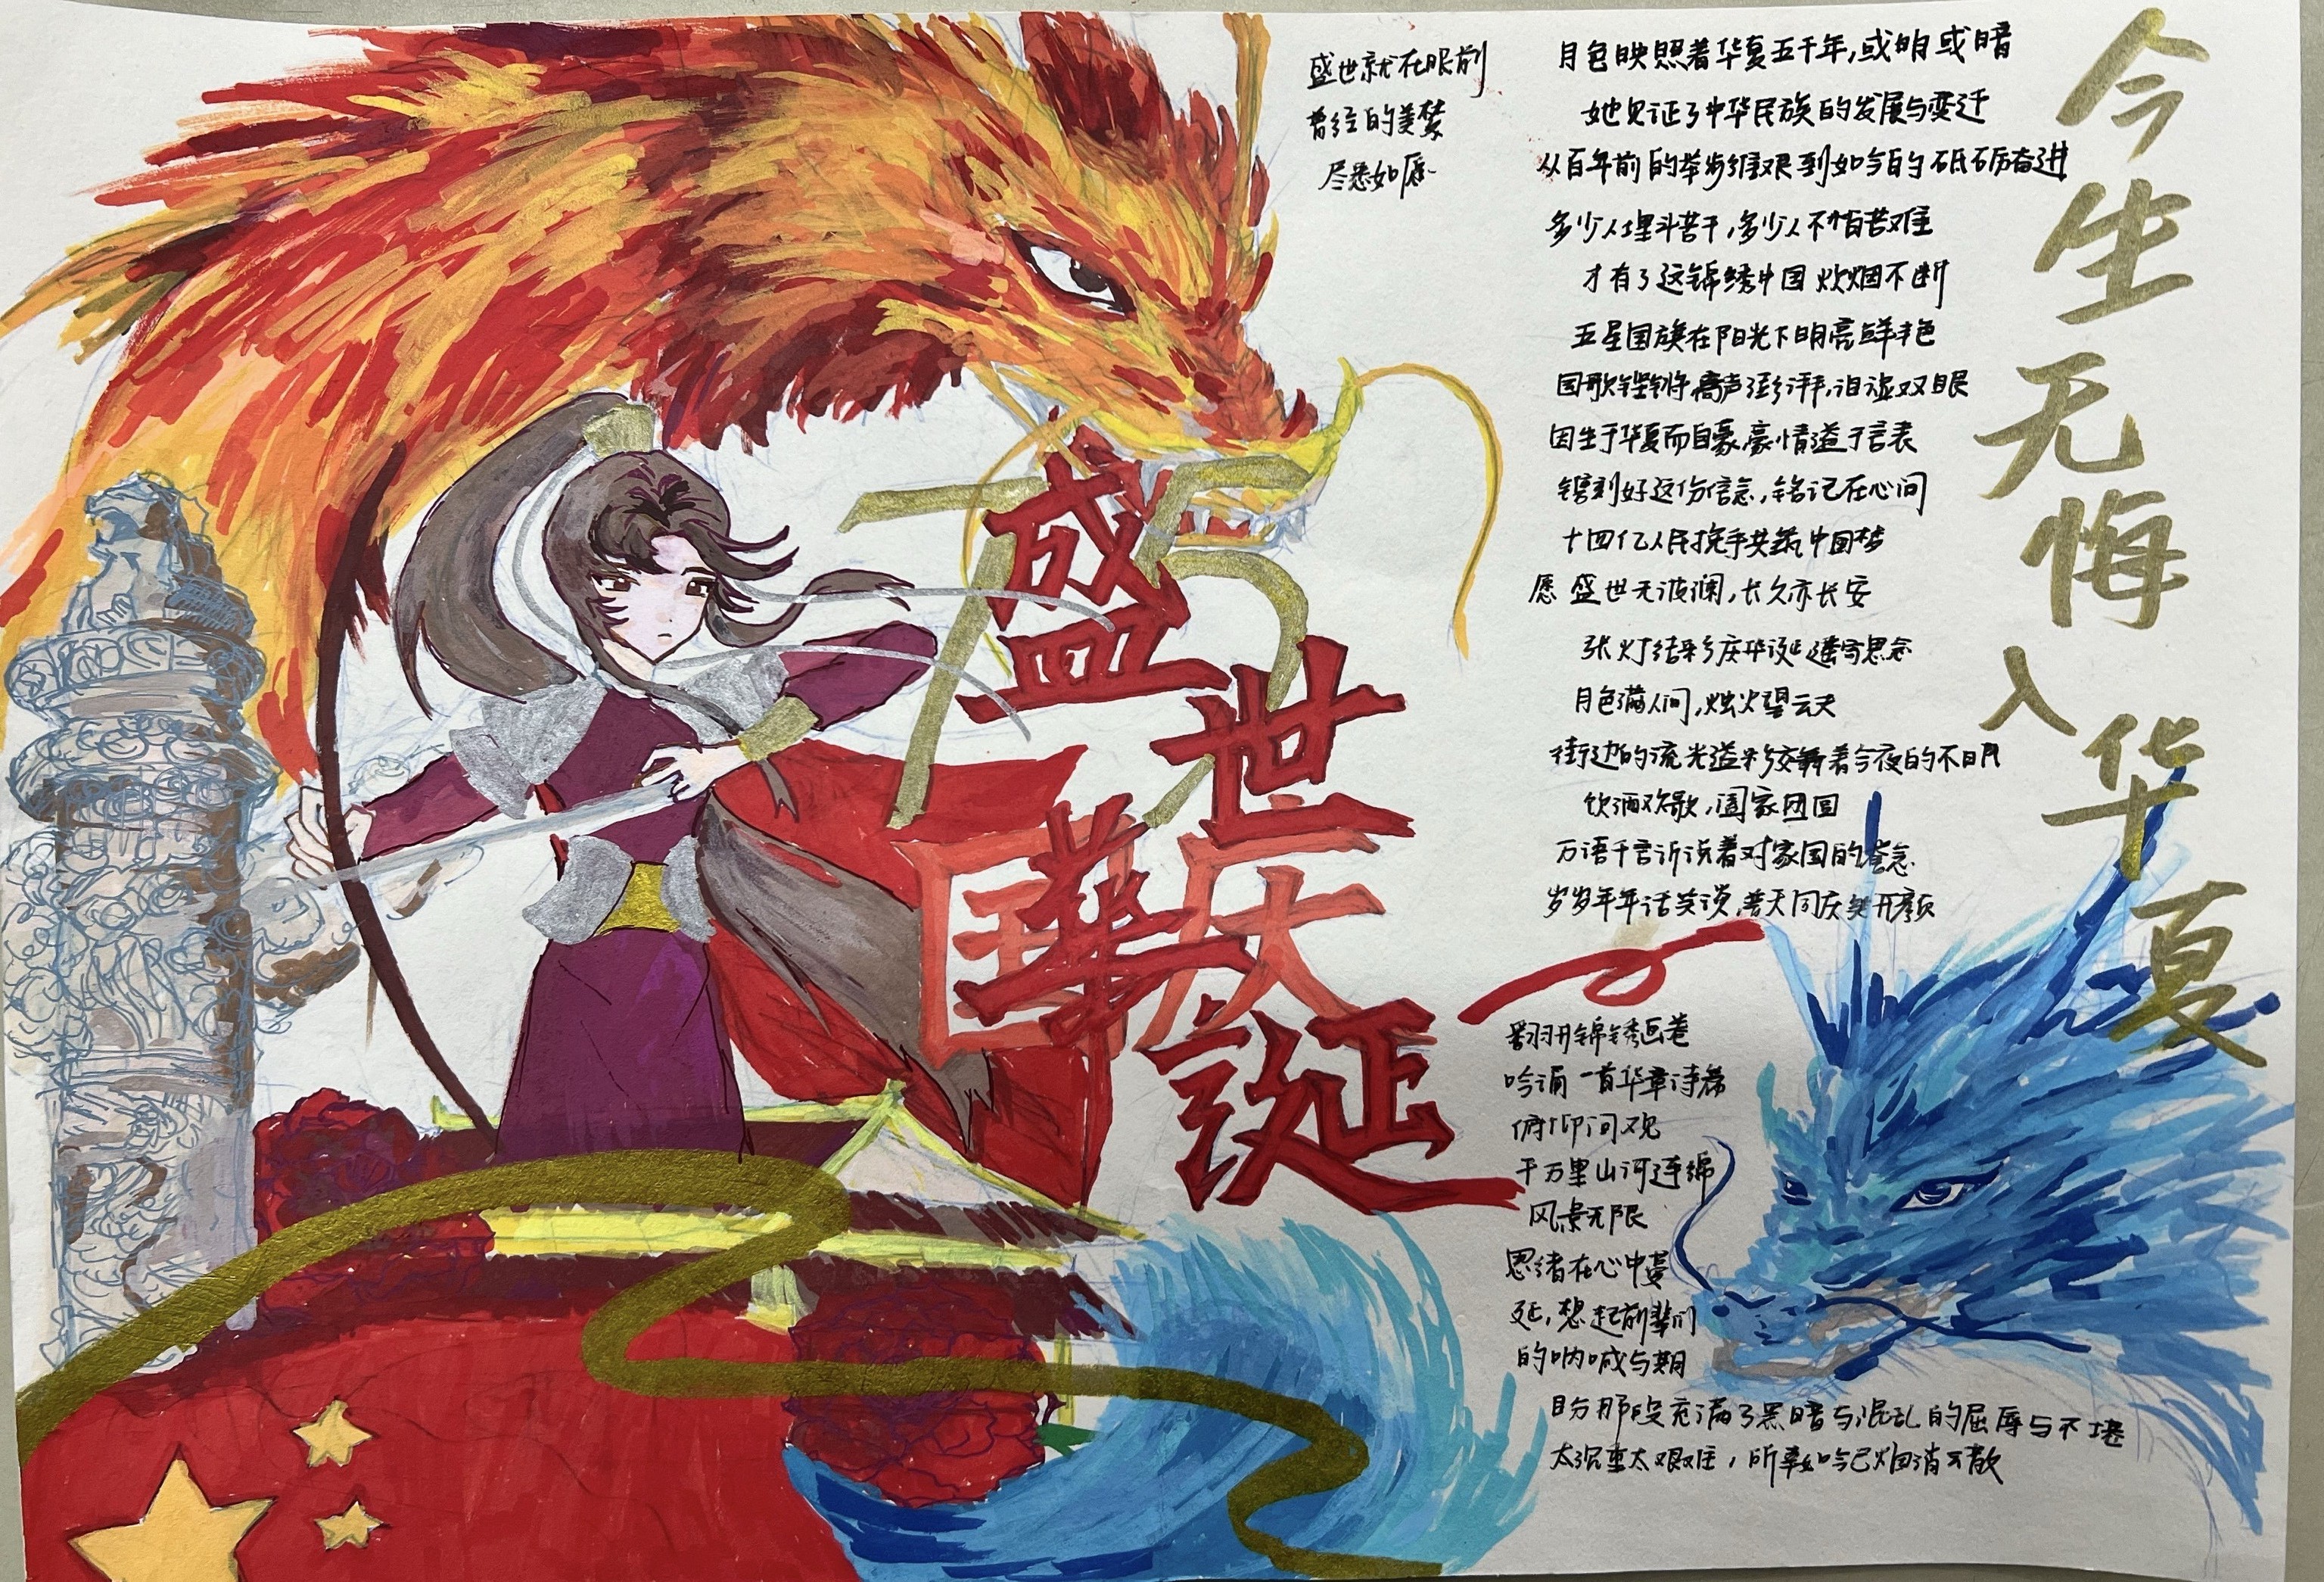 盛世就在眼前
曾经的美梦
尽悉如愿
月色映照着华夏五千年,或明或暗
她见证了中华民族的发展与变迁
从百年前的举步维艰到如今的砥砺奋进
多少人埋头苦干,多少人不惧苦难
才有了这锦绣中国 炊烟不断
五星国旗在阳光下明亮鲜艳
国歌铿锵 高声澎湃,泪湿双眼
因生于华夏而自豪,豪情溢于言表
镌刻好这份信念,铭记在心间
十四亿人民挽手共筑中国梦
愿盛世无波澜,长久亦长安
张灯结彩庆华诞 遥寄思念
月色满人间,烛火望云天
街边的流光溢彩交舞着今夜的不眠
饮酒欢歌,阖家团圆
万语千言诉说着对家国的眷念
岁岁年年话笑谈,普天同庆笑开颜
今生无悔入华夏
75
盛世華诞
国庆
翻开锦锈画卷
吟诵一首华章诗篇
俯仰间观
千万里山河连绵
风景无限
思绪在心中蔓
延,想起前辈们
的呐喊与期
盼 那段充满了黑暗与混乱的屈辱与不堪
太沉重太艰难,所幸如今已烟消云散